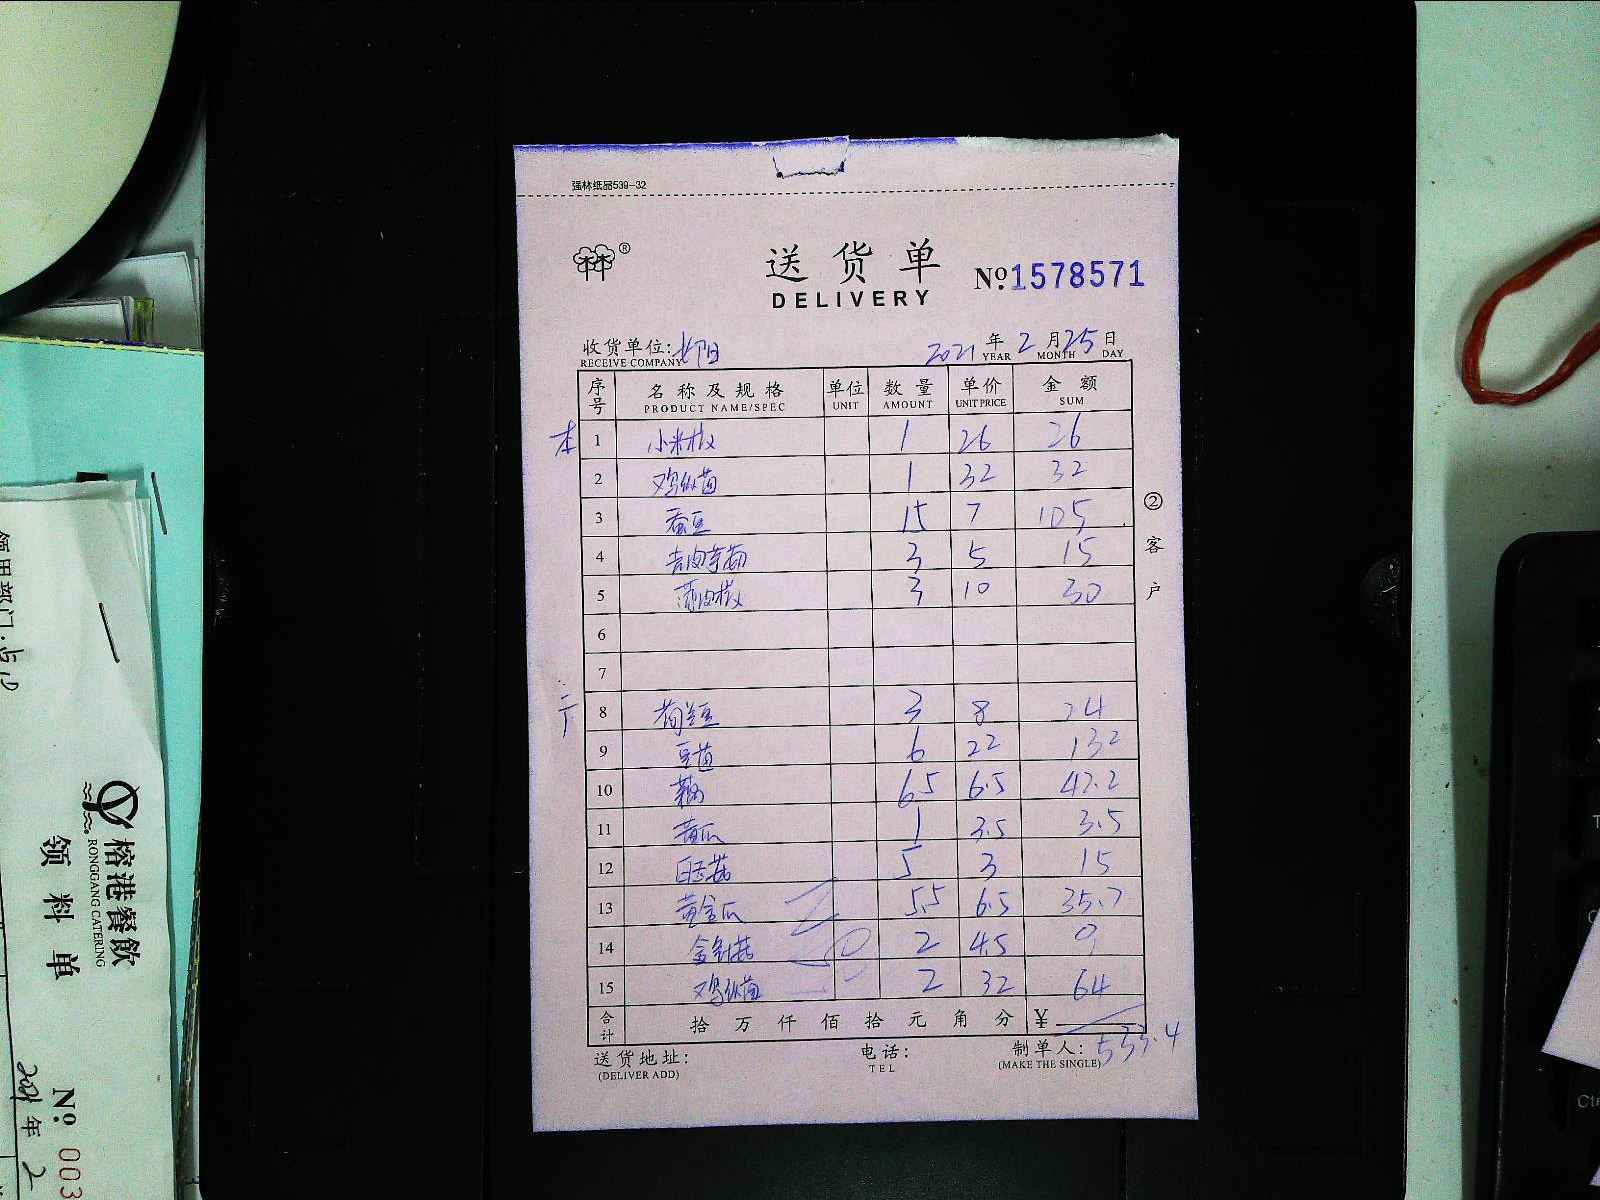 强林纸品539-32
林林 ®
送货单
DELIVERY
Nº 1578571
收货单位:
RECEIVE COMPANY
2021 年 2 月 25 日
YEAR MONTH DAY
序号 名称及规格 单位 数量 单价 金额
PRODUCT NAME/SPEC UNIT AMOUNT UNIT PRICE SUM
本 1 小米椒 1 26 26
2 鸡枞菌 1 32 32
3 蚕豆 15 7 105
4 3 5 15
5 薄肉椒 3 10 30
6
7
二丁 8 荷兰豆 3 8 24
9 豆苗 6 22 132
10 藕 6.5 6.5 42.2
11 黄瓜 1 3.5 3.5
12 白玉菇 5 3 15
13 黄金瓜 5.5 6.5 35.7
14 金针菇 2 4.5 9
15 鸡枞菌 2 32 64
合计 拾万仟佰拾元角分 ¥
533.4
送货地址: 电话: 制单人:
(DELIVER ADD) TEL (MAKE THE SINGLE)
②客户
榕港餐飲
RONGGANG CATERING
领料单
Nº 003
2021年2
领用部门:
Ctr